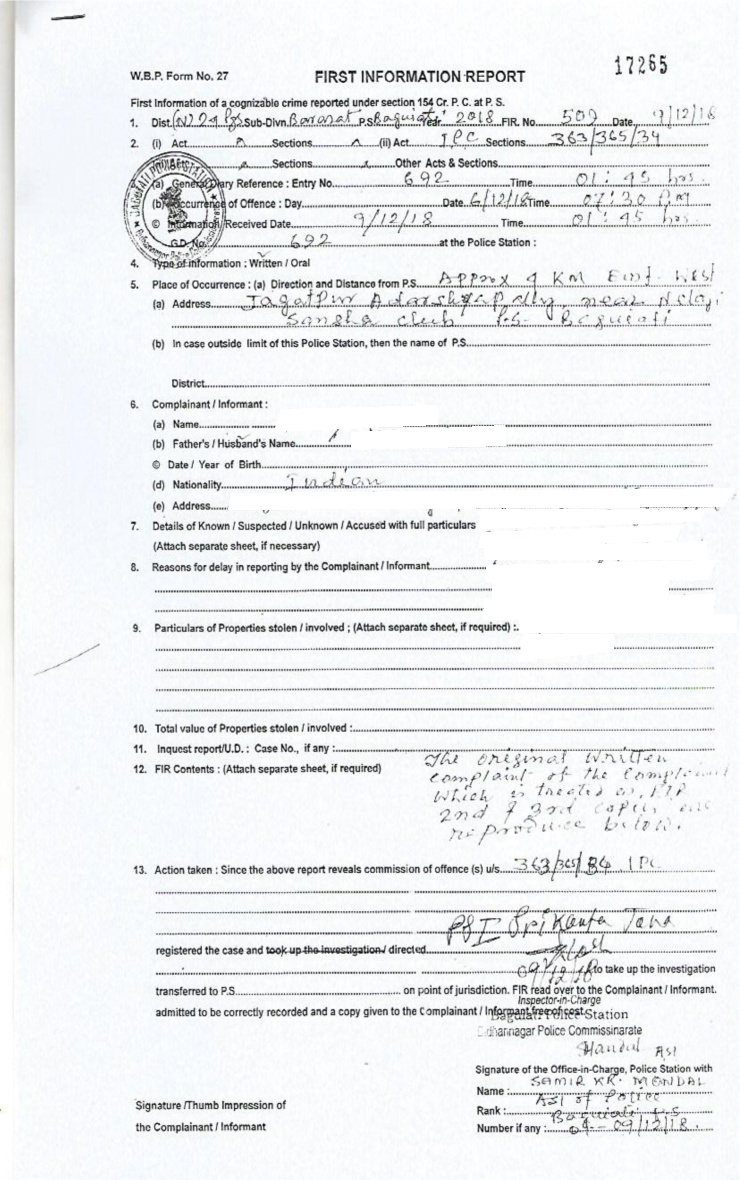 17265
W.B.P. Form No. 27 FIRST INFORMATION REPORT
First Information of a cognizable crime reported under section 154 Cr. P. C. at P. S.
1. Dist. (N) 24 Pgs Sub-Divn. Barasat P.S Baguiati Year 2018 FIR. No. 509 Date 9/12/18
2. (i) Act Sections (ii) Act IPC Sections 363/365/34
Sections Other Acts & Sections
(a) General Diary Reference : Entry No. 692 Time 01:45 hrs.
(b) Occurrence of Offence : Day Date 6/12/18 Time 07:30 PM
© Information Received Date 9/12/18 Time 01:45 hrs.
G.D. No. 692 at the Police Station :
4. Type of information : Written / Oral
5. Place of Occurrence : (a) Direction and Distance from P.S. Approx 4 KM West
(a) Address Jagatpur Adarshapally, near Netaji
Sangha club P.S. Baguiati
(b) In case outside limit of this Police Station, then the name of P.S.
District
6. Complainant / Informant :
(a) Name
(b) Father's / Husband's Name
© Date / Year of Birth
(d) Nationality Indian
(e) Address
7. Details of Known / Suspected / Unknown / Accused with full particulars
(Attach separate sheet, if necessary)
8. Reasons for delay in reporting by the Complainant / Informant
9. Particulars of Properties stolen / involved ; (Attach separate sheet, if required) :
10. Total value of Properties stolen / involved :
11. Inquest report/U.D. : Case No., if any :
12. FIR Contents : (Attach separate sheet, if required) The original written
complaint of the complainant
which is treated as FIR
2nd & 3rd copies are
reproduce below.
13. Action taken : Since the above report reveals commission of offence (s) u/s. 363/365/34 IPC
PSI Srikanta Jana
registered the case and took up the investigation / directed
09/12/18 to take up the investigation
transferred to P.S. on point of jurisdiction. FIR read over to the Complainant / Informant.
Inspector-in-Charge
admitted to be correctly recorded and a copy given to the Complainant / Informant free of cost.
Baguiati Police Station
Bidhannagar Police Commissinarate
Mandal ASI
Signature of the Office-in-Charge, Police Station with
Name : SAMIR KR. MONDAL
Rank : ASI of Police
Baguiati P.S
Number if any : 09/12/18.
Signature /Thumb Impression of
the Complainant / Informant